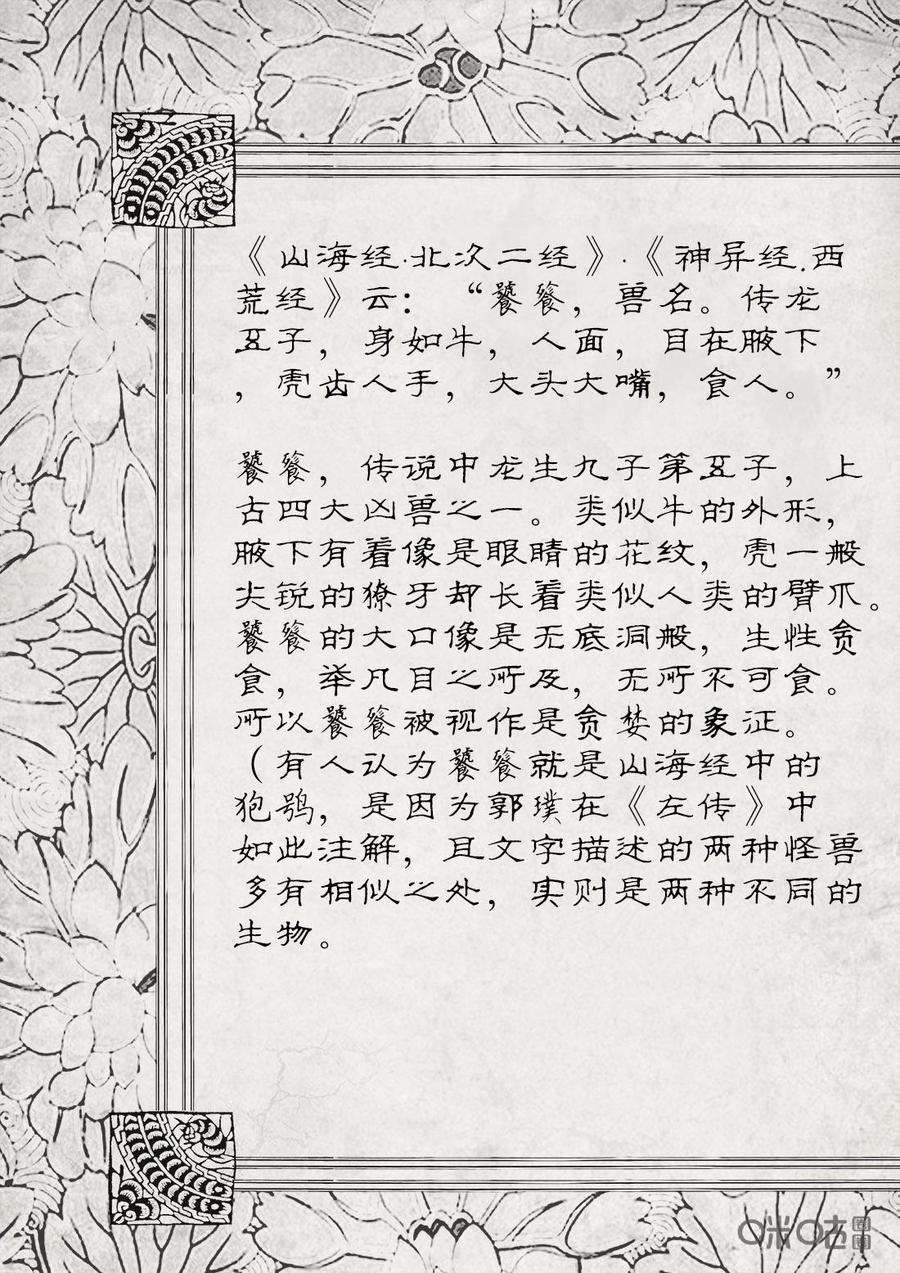 《山海经·北次二经》·《神异经.西
荒经》云：“饕餮，兽名。传龙
五子，身如牛，人面，目在腋下
，虎齿人手，大头大嘴，食人。”
饕餮，传说中龙生九子第五子，上
古四大凶兽之一。类似牛的外形，
腋下有着像是眼睛的花纹，虎一般
尖锐的獠牙却长着类似人类的臂爪。
饕餮的大口像是无底洞般，生性贪
食，举凡目之所及，无所不可食。
所以饕餮被视作是贪婪的象征。
（有人认为饕餮就是山海经中的
狍鸮，是因为郭璞在《左传》中
如此注解，且文字描述的两种怪兽
多有相似之处，实则是两种不同的
生物。
咪咕圈圈